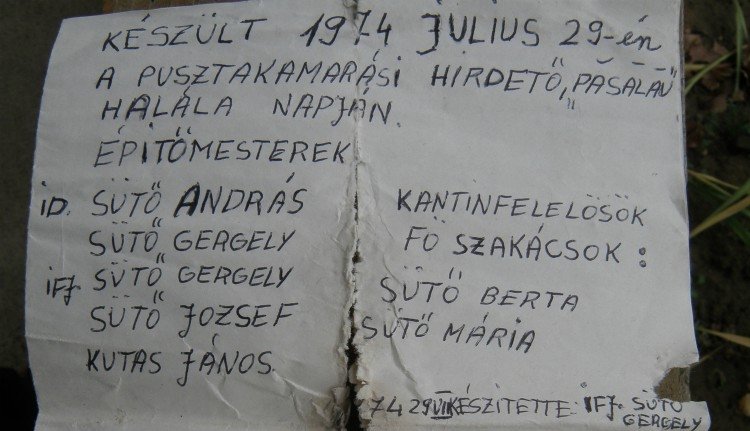 KÉSZÜLT 1974 JÚLIUS 29-én
A PUSZTAKAMARÁSI HIRDETŐ, „PASALAU"
HALÁLA NAPJÁN.
ÉPITŐMESTEREK
ID. SÜTŐ ANDRÁS
SÜTŐ GERGELY
IFJ. SÜTŐ GERGELY
SÜTŐ JOZSEF
KUTAS JÁNOS.
KANTINFELELŐSÖK
FŐ SZAKÁCSOK:
SÜTŐ BERTA
SÜTŐ MÁRIA
74 29 VII KÉSZITETTE: IFJ. SÜTŐ
GERGELY